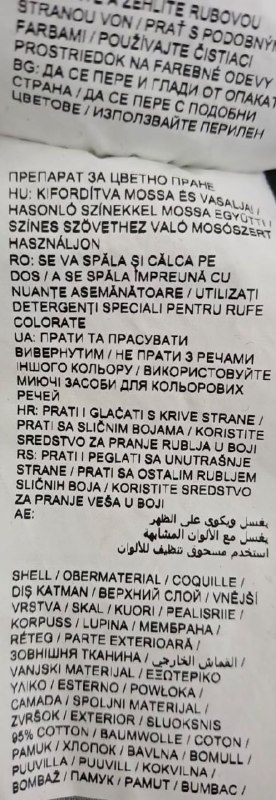 E A ŽEHLITE RUBOVOU
STRANOU VON / PRAŤ S PODOBNÝ
FARBAMI / POUŽÍVAJTE ČISTIACI
PROSTRIEDOK NA FAREBNÉ ODEVY
BG: ДА СЕ ПЕРЕ И ГЛАДИ ОТ ОПАКАТ
СТРАНА / ДА СЕ ПЕРЕ С ПОДОБНИ
ЦВЕТОВЕ / ИЗПОЛЗВАЙТЕ ПЕРИЛЕН
ПРЕПАРАТ ЗА ЦВЕТНО ПРАНЕ
HU: KIFORDÍTVA MOSSA ÉS VASALJA /
HASONLÓ SZÍNEKKEL MOSSA EGYÜTT /
SZÍNES SZÖVETHEZ VALÓ MOSÓSZERT
HASZNÁLJON
RO: SE VA SPĂLA ȘI CĂLCA PE
DOS / A SE SPĂLA ÎMPREUNĂ CU
NUANȚE ASEMĂNĂTOARE / UTILIZAȚI
DETERGENȚI SPECIALI PENTRU RUFE
COLORATE
UA: ПРАТИ ТА ПРАСУВАТИ
ВИВЕРНУТИМ / НЕ ПРАТИ З РЕЧАМИ
ІНШОГО КОЛЬОРУ / ВИКОРИСТОВУЙТЕ
МИЮЧІ ЗАСОБИ ДЛЯ КОЛЬОРОВИХ
РЕЧЕЙ
HR: PRATI I GLAČATI S KRIVE STRANE /
PRATI SA SLIČNIM BOJAMA / KORISTITE
SREDSTVO ZA PRANJE RUBLJA U BOJI
RS: PRATI I PEGLATI SA UNUTRAŠNJE
STRANE / PRATI SA OSTALIM RUBLJEM
SLIČNIH BOJA / KORISTITE SREDSTVO
ZA PRANJE VEŠA U BOJI
AE:
يغسل ويكوى على الظهر
يغسل مع الألوان المشابهة
استخدم مسحوق تنظيف للألوان
SHELL / OBERMATERIAL / COQUILLE /
DIŞ KATMAN / ВЕРХНИЙ СЛОЙ / VNĚJŠÍ
VRSTVA / SKAL / KUORI / PEALISRIIE /
KORPUSS / LUPINA / МЕМБРАНА /
RÉTEG / PARTE EXTERIOARĂ /
ЗОВНІШНЯ ТКАНИНА / القماش الخارجي /
VANJSKI MATERIJAL / ΕΞΩΤΕΡΙΚΟ
ΥΛΙΚΟ / ESTERNO / POWŁOKA /
CAMADA / SPOLJNI MATERIJAL /
ZVRŠOK / EXTERIOR / SLUOKSNIS
95% COTTON / BAUMWOLLE / COTON /
PAMUK / ХЛОПОК / BAVLNA / BOMULL /
PUUVILLA / PUUVILL / KOKVILNA /
BOMBAŽ / ПАМУК / PAMUT / BUMBAC /